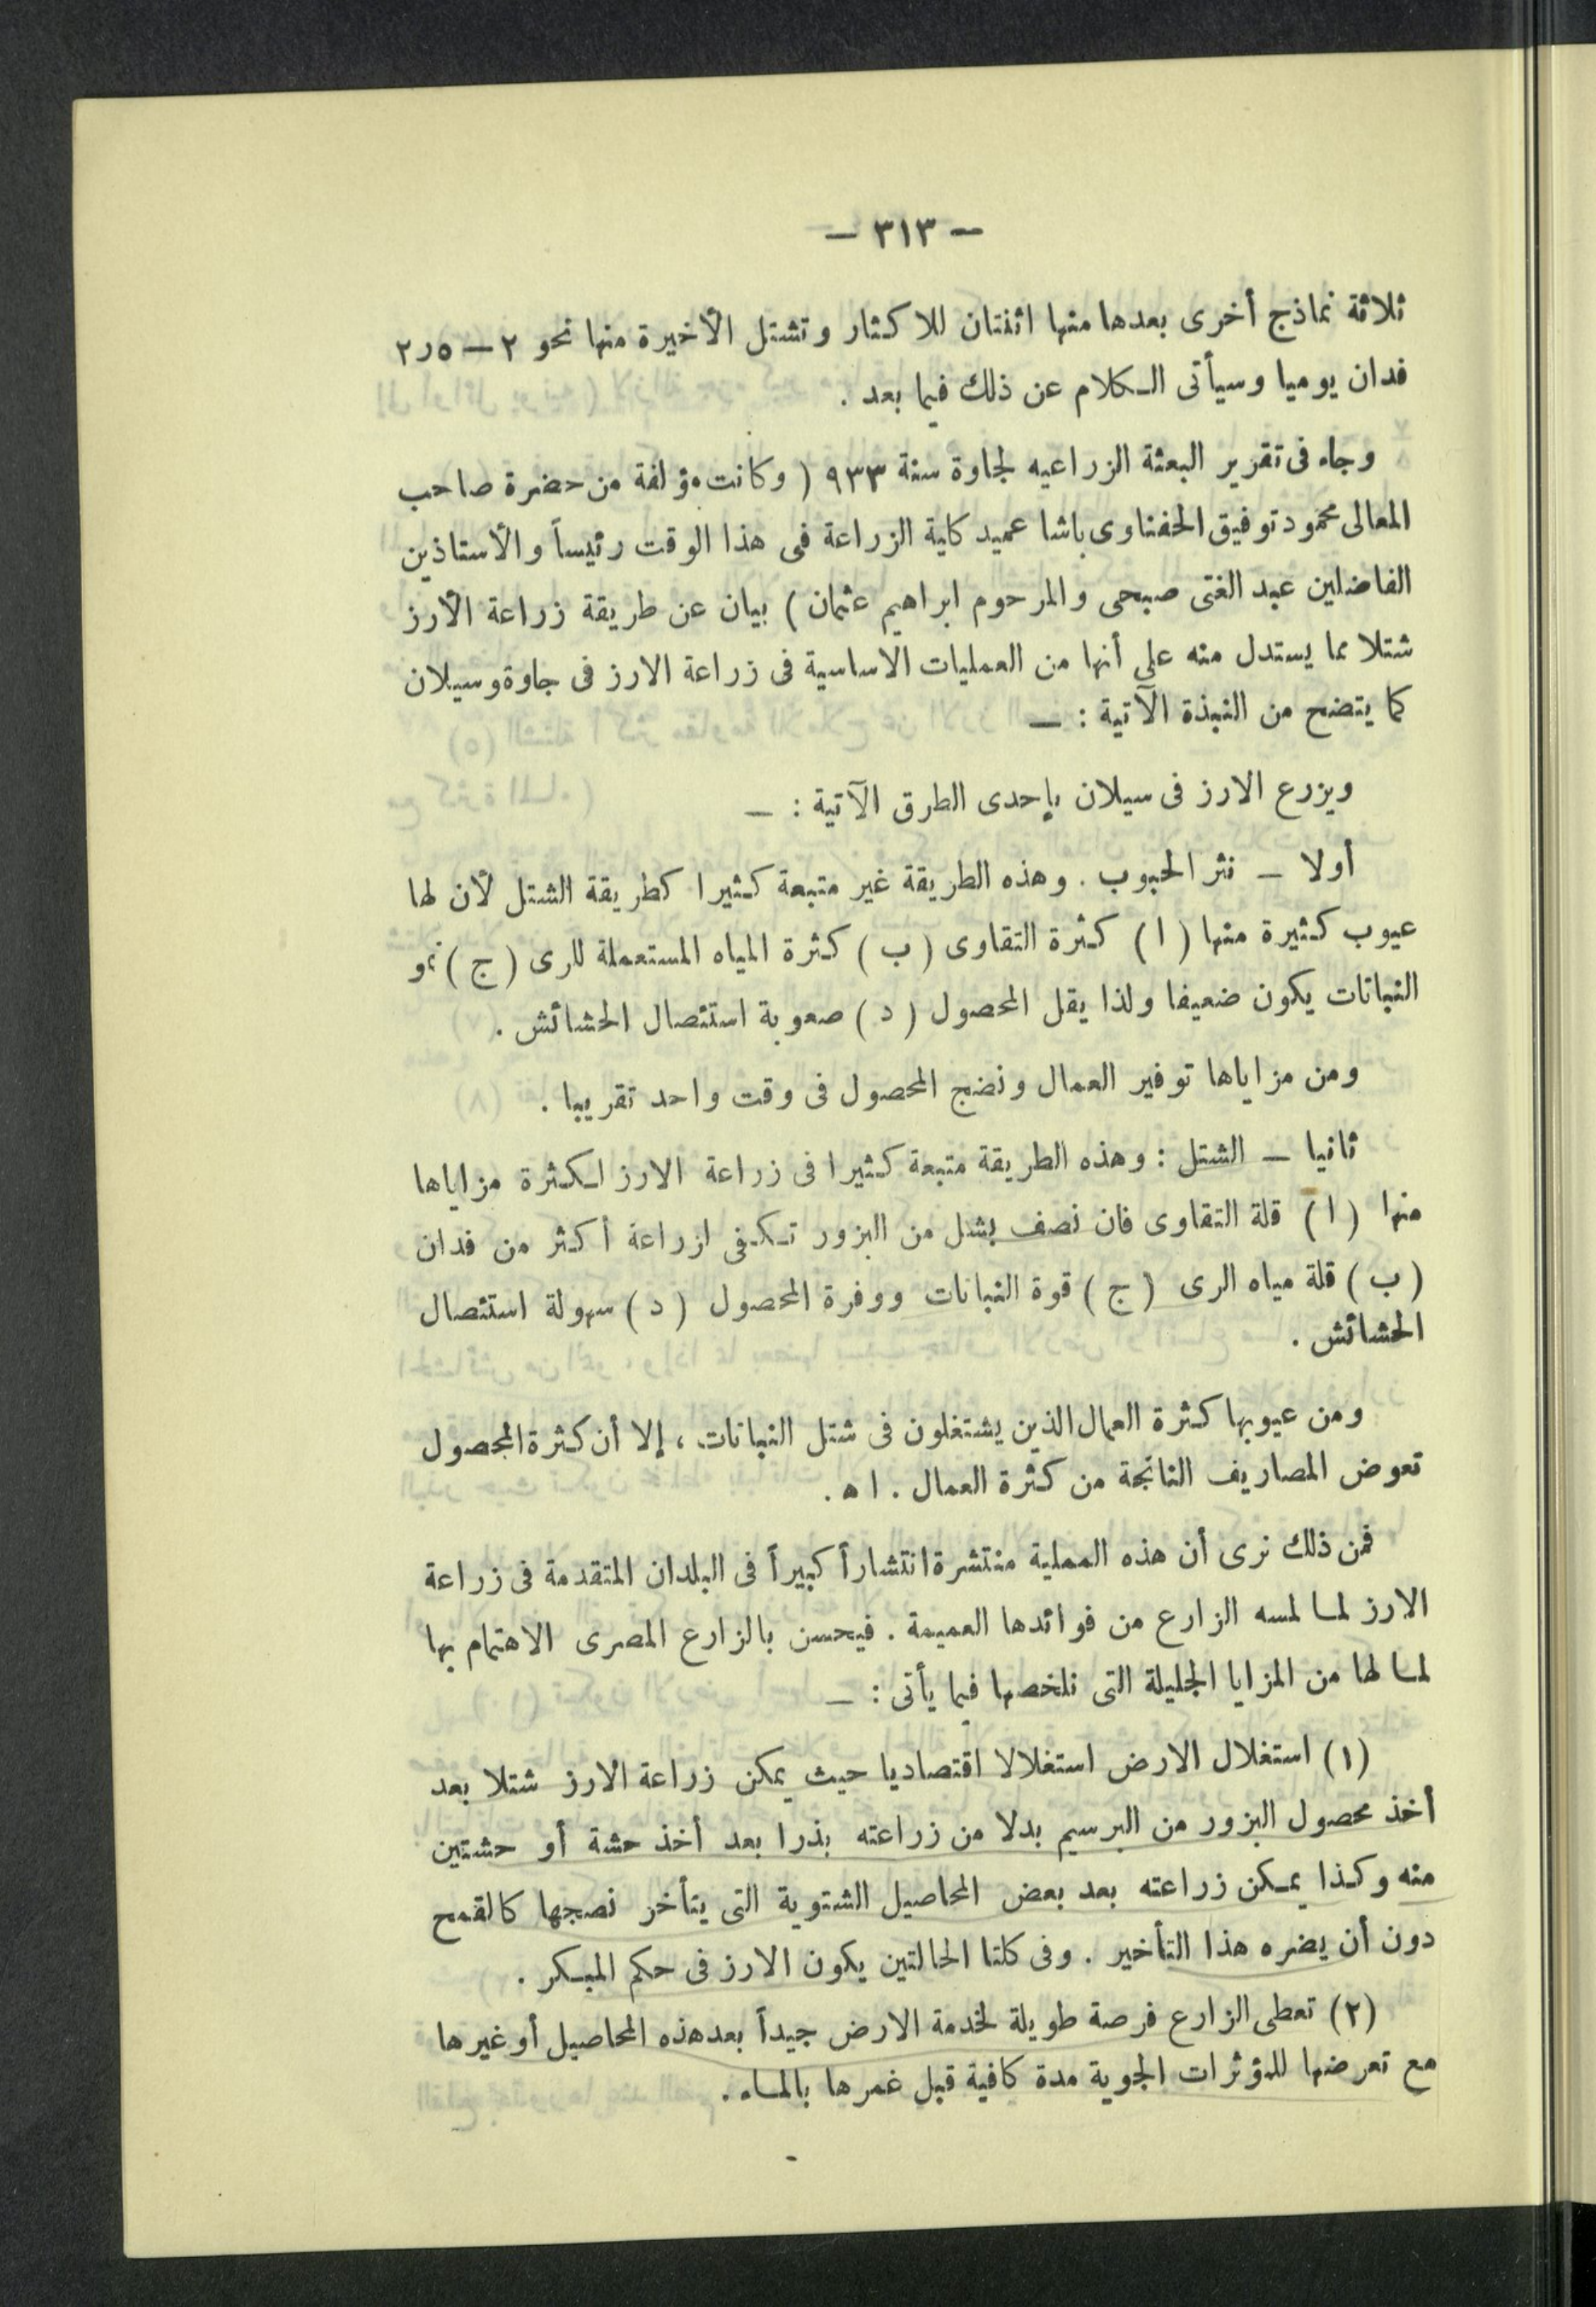 — ٣١٣ —
ثلاثة نماذج أخرى بعدها منها اثنتان للاكثار وتشتل الأخيرة منها نحو ٢ — ٢٫٥
فدان يوميا وسيأتى الكلام عن ذلك فيما بعد .
وجاء فى تقرير البعثة الزراعيه لجاوة سنة ٩٣٣ ( وكانت مؤلفة من حضرة صاحب
المعالى محمود توفيق الحفناوى باشا عميد كاية الزراعة فى هذا الوقت رئيساً والأستاذين
الفاضلين عبد الغنى صبحى والمرحوم ابراهيم عثمان ) بيان عن طريقة زراعة الأرز
شتلا مما يستدل منه على أنها من العمليات الأساسية فى زراعة الارز فى جاوة وسيلان
كما يتضح من النبذة الآتية : —
ويزرع الارز فى سيلان بإحدى الطرق الآتية : —
أولا — نثر الحبوب . وهذه الطريقة غير متبعة كثيرا كطريقة الشتل لأن لها
عيوب كثيرة منها ( ا ) كثرة التقاوى ( ب ) كثرة المياه المستعملة للرى ( ج ) نمو
النباتات يكون ضعيفا ولذا يقل المحصول ( د ) صعوبة استئصال الحشائش .
ومن مزاياها توفير العمال ونضج المحصول فى وقت واحد تقريبا .
ثانيا — الشتل : وهذه الطريقة متبعة كثيرا فى زراعة الارز لكثرة مزاياها
منها ( ا ) قلة التقاوى فان نصف بشل من البزور تكفى ازراعة أكثر من فدان
( ب ) قلة مياه الرى ( ج ) قوة النباتات ووفرة المحصول ( د ) سهولة استئصال
الحشائش .
ومن عيوبها كثرة العمال الذين يشتغلون فى شتل النباتات ، إلا أن كثرة المحصول
تعوض المصاريف الناتجة من كثرة العمال . ا ه .
فمن ذلك نرى أن هذه العملية منتشرة انتشاراً كبيراً فى البلدان المتقدمة فى زراعة
الارز لما لمسه الزارع من فوائدها العميمة . فيحسن بالزارع المصرى الاهتمام بها
لما لها من المزايا الجليلة التى نلخصها فيما يأتى : —
(١) استغلال الارض استغلالا اقتصاديا حيث يمكن زراعة الارز شتلا بعد
أخذ محصول البزور من البرسيم بدلا من زراعته بذرا بعد أخذ حشة أو حشتين
منه وكذا يمكن زراعته بعد بعض المحاصيل الشتوية التى يتأخر نصجها كالقمح
دون أن يضره هذا التأخير . وفى كلتا الحالتين يكون الارز فى حكم المبكر .
(٢) تعطى الزارع فرصة طويلة لخدمة الارض جيداً بعد هذه المحاصيل أو غيرها
مع تعرضها للمؤثرات الجوية مدة كافية قبل غمرها بالماء .